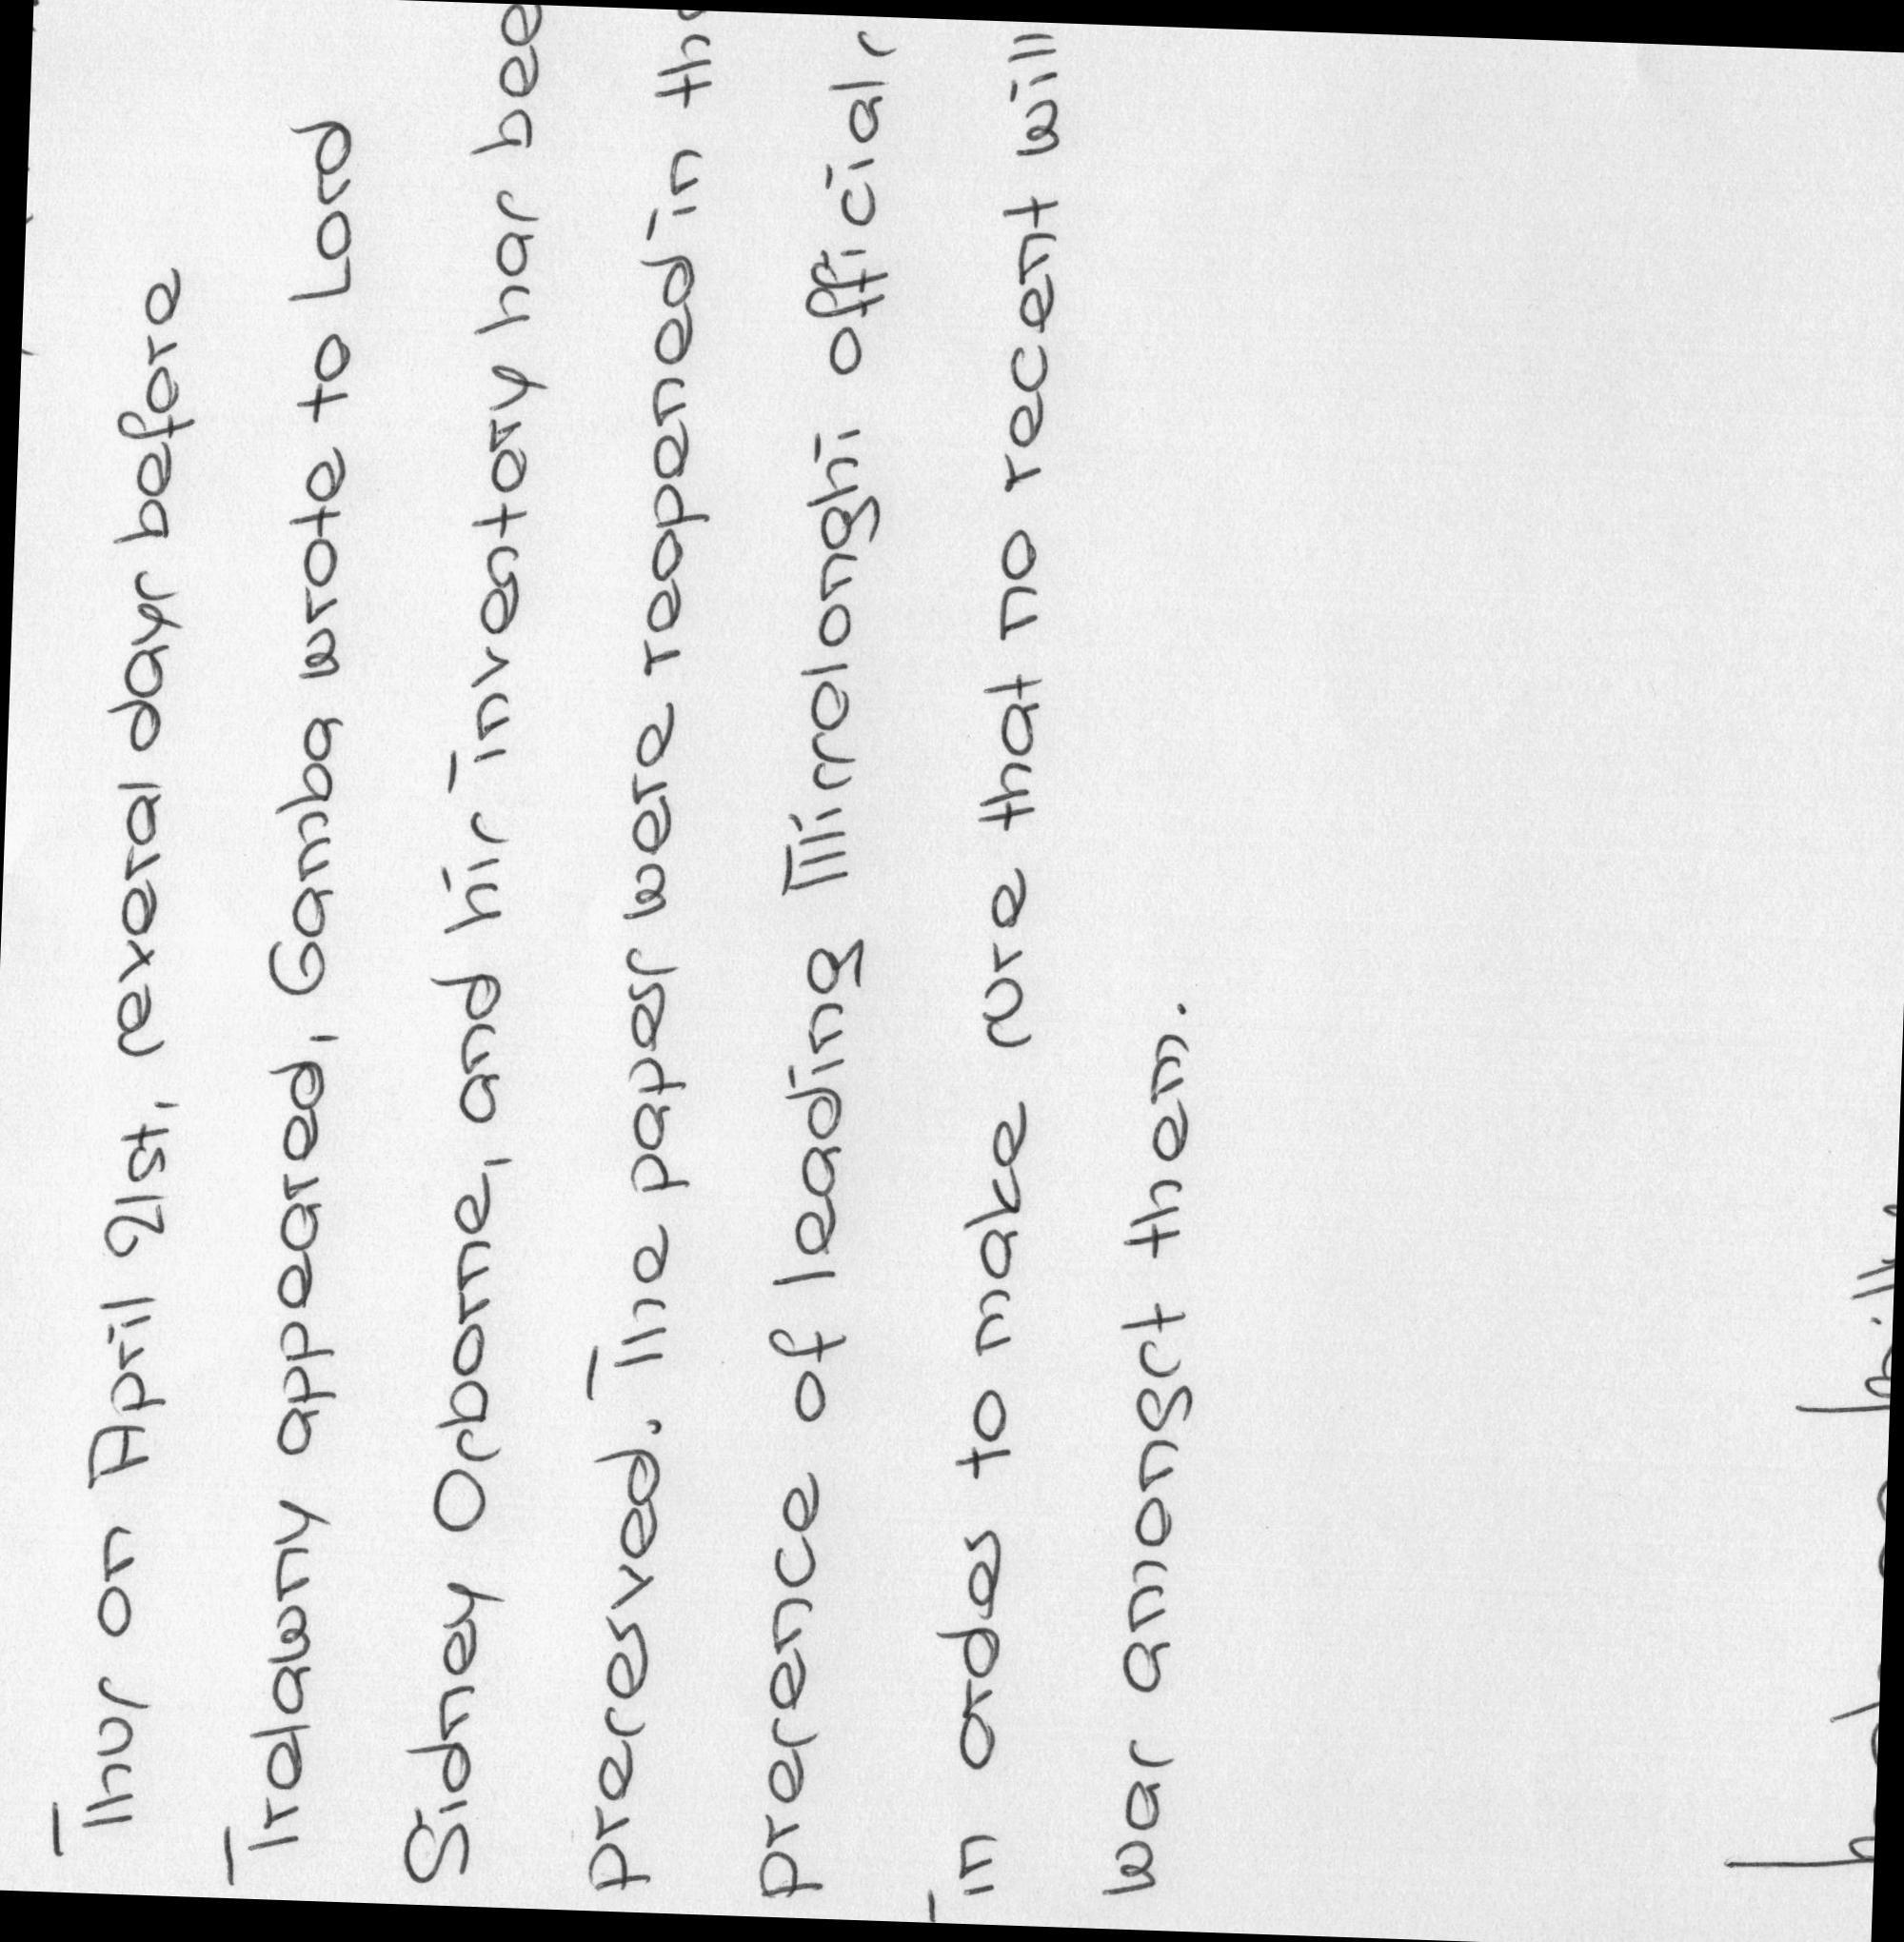 Thus on April 21st, several days before
Trelawny appeared, Gamba wrote to Lord
Sidney Osborne, and his inventory has bee
preserved. The papers were reopened in the
presence of leading Missolonghi officials
in order to make sure that no recent will
was amongst them.